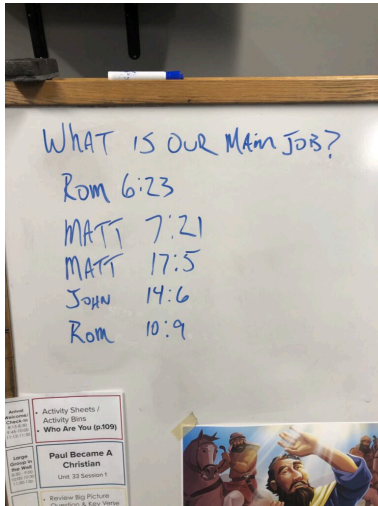 WHAT IS OUR MAIN JOB?
ROM 6:23
MATT 7:21
MATT 17:5
JOHN 14:6
ROM 10:9
Arrival
Welcome/
Check-in
• Activity Sheets /
Activity Bins
• Who Are You (p.109)
Large
Group in
the Well
Paul Became A
Christian
Unit 33 Session 1
• Review Big Picture
Question & Key Verse